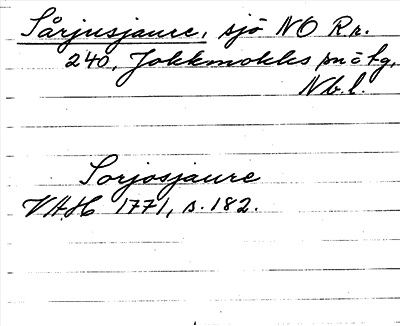 Sårjusjaure, sjö NO R.r.
240, Jokkmokks sn o tg,
Nb.l.
Sorjosjaure
VAH 1771, s. 182.